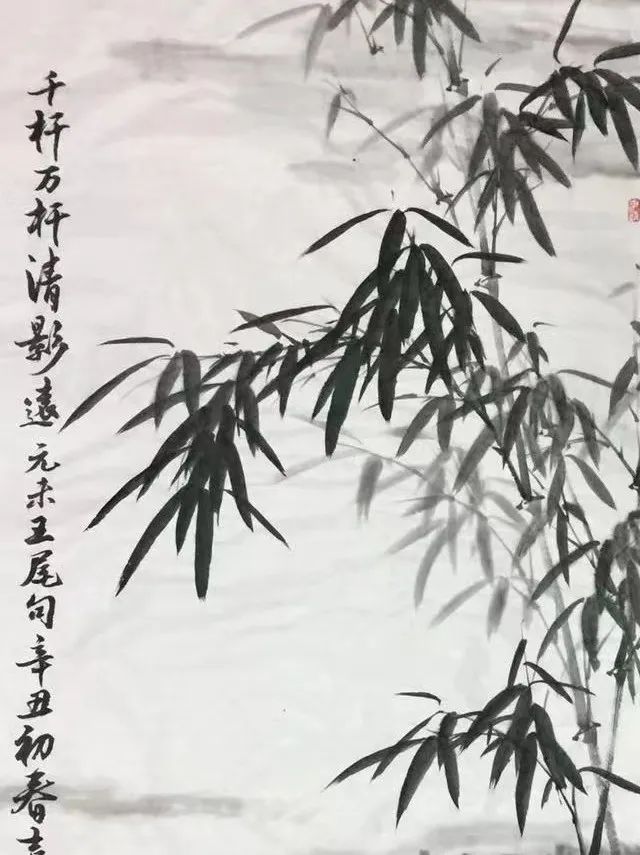 千杆万杆清影远元末王尾句辛丑初春吉